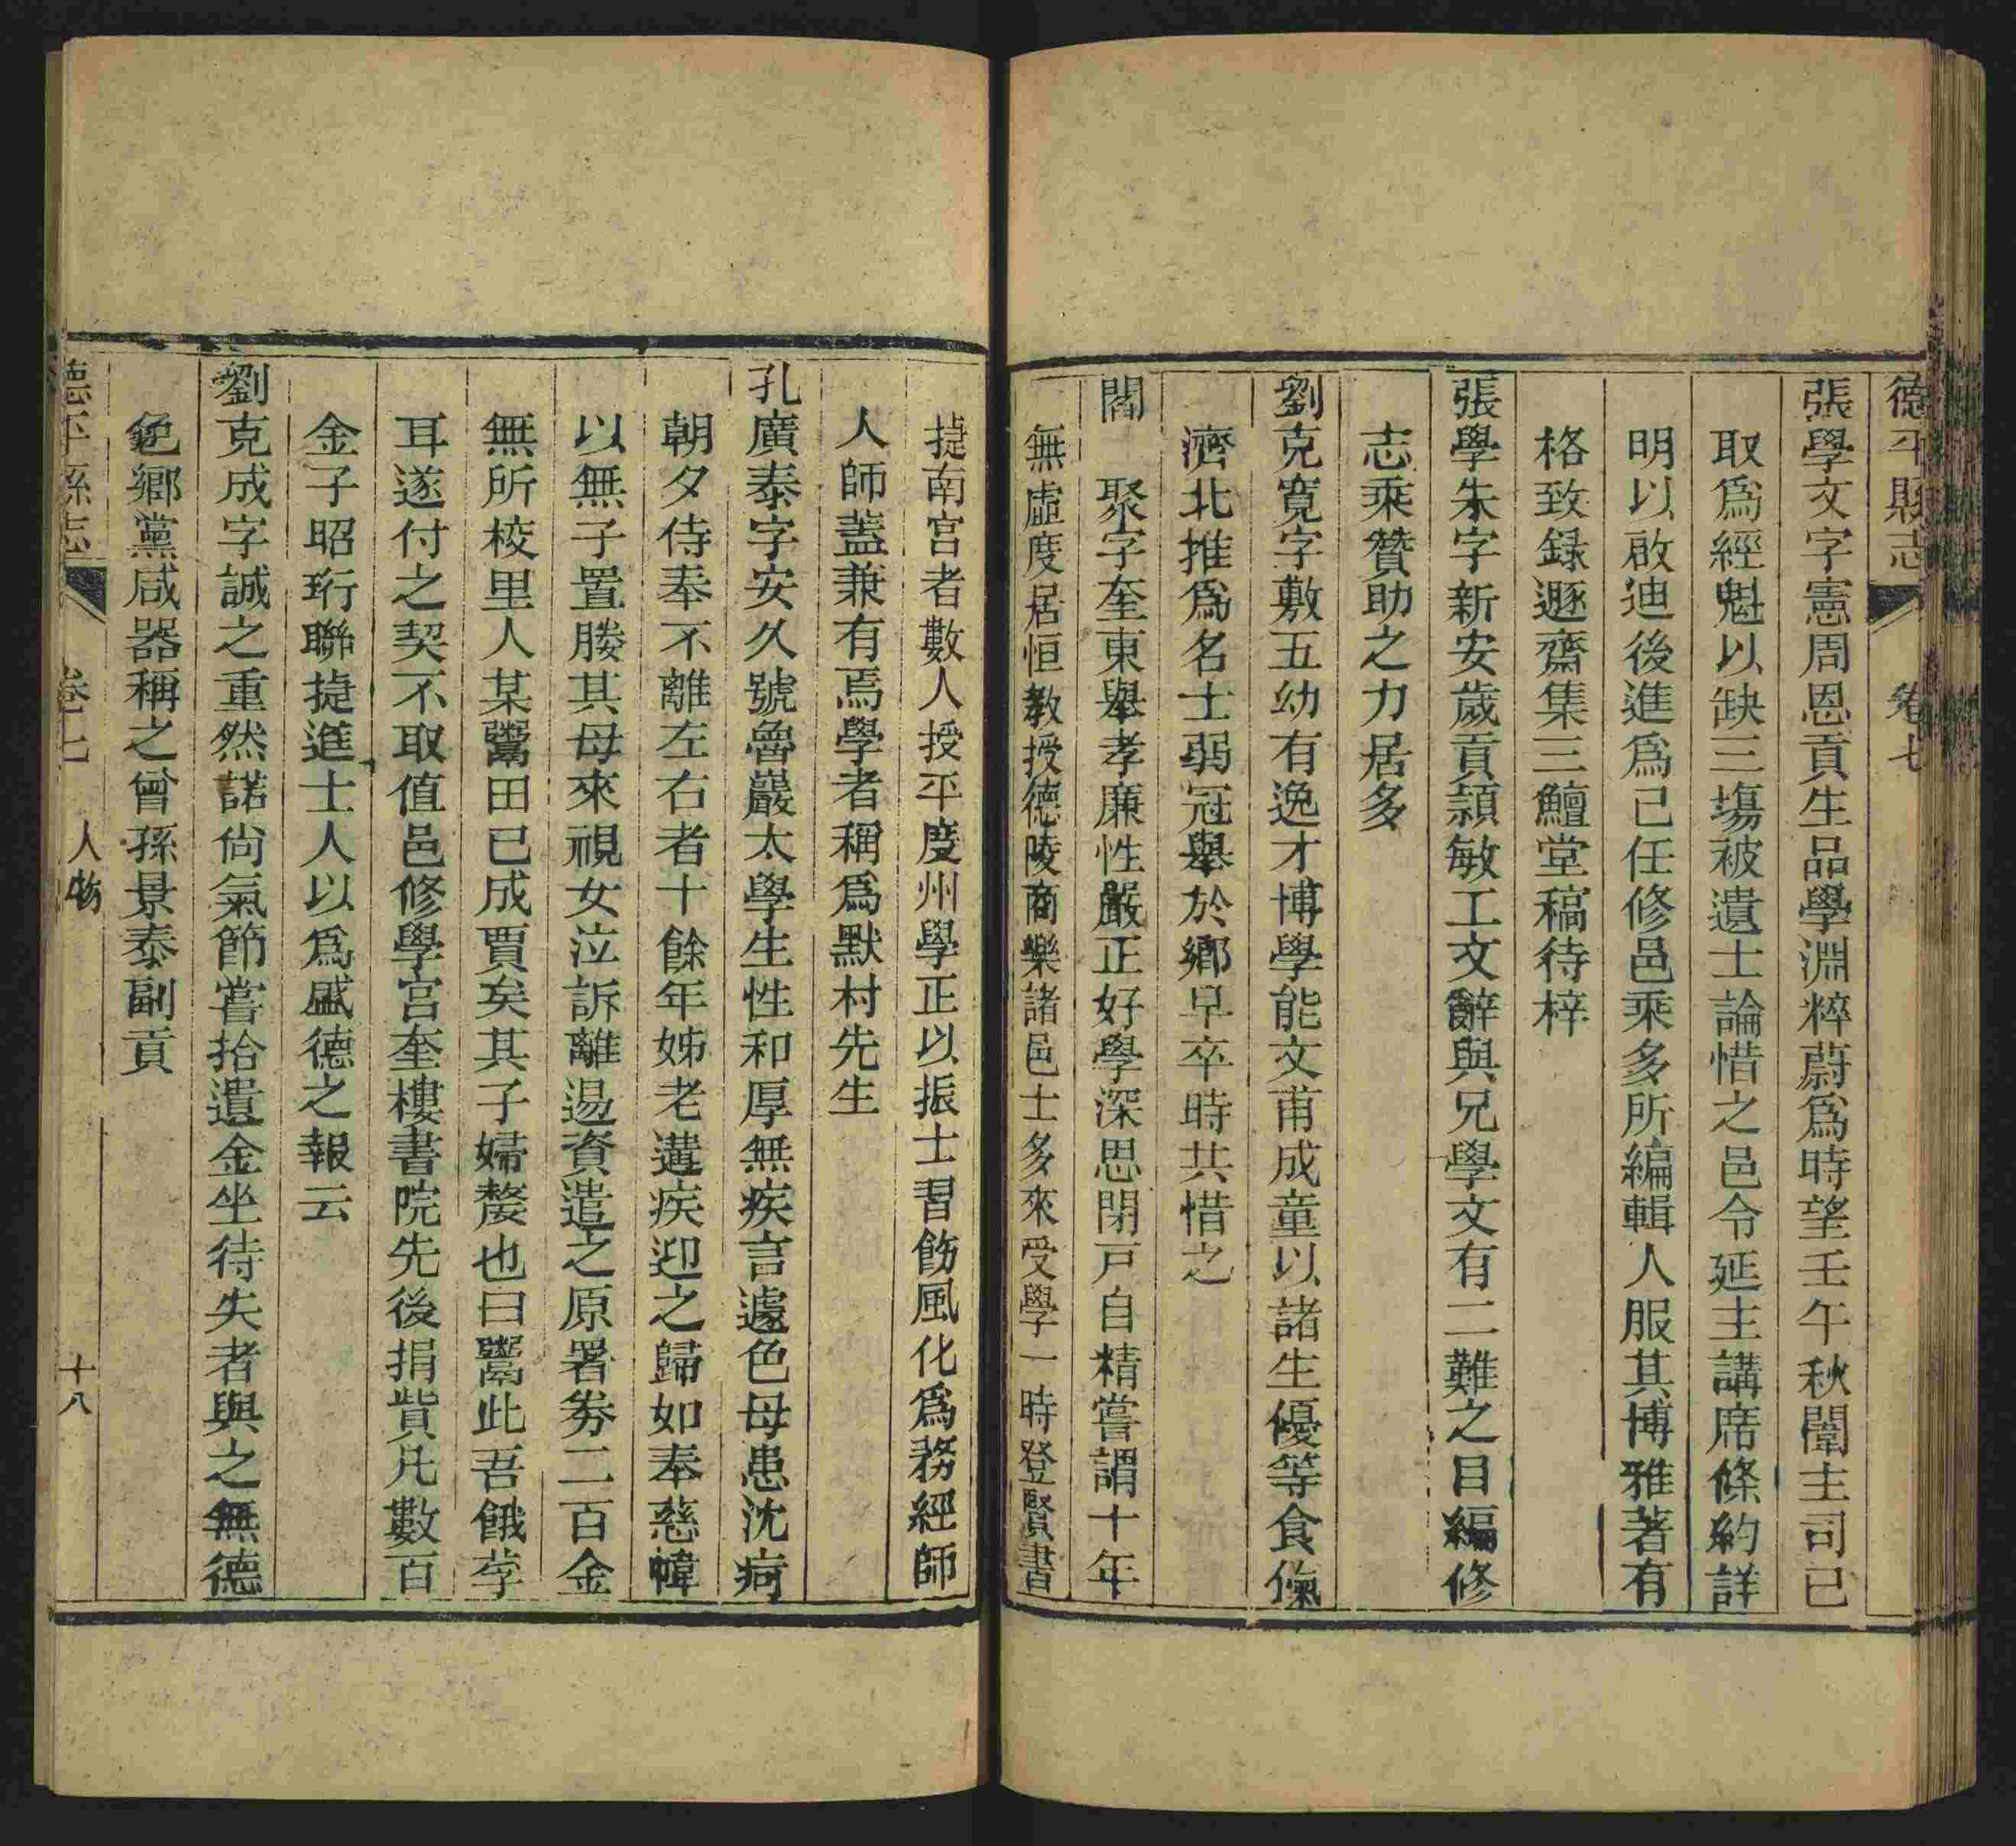 德平縣志 卷七
張學文字憲周恩貢生品學淵粹蔚爲時望壬午秋闈主司已
取爲經魁以缺三塲被遺士論惜之邑令延主講席條約詳
明以啟迪後進爲己任修邑乘多所編輯人服其博雅著有
格致録遯齋集三鱣堂稿待梓
張學朱字新安歲貢頴敏工文辭與兄學文有二難之目編修
志乘贊助之力居多
劉克寬字敷五幼有逸才博學能文甫成童以諸生優等食餼
濟北推爲名士弱冠舉於鄉早卒時共惜之
閻 聚字奎東舉孝廉性嚴正好學深思閉戸自精嘗謂十年
無虛度居恒教授德陵商樂諸邑士多來受學一時登賢書
捷南宮者數人授平度州學正以振士習飭風化爲務經師
人師蓋兼有焉學者稱爲默村先生
孔廣泰字安久號魯巖太學生性和厚無疾言遽色母患沈疴
朝夕侍奉不離左右者十餘年姊老遘疾迎之歸如奉慈幃
以無子置媵其母來視女泣訴離逷資遣之原署劵二百金
無所校里人某鬻田已成賈矣其子婦嫠也曰鬻此吾餓莩
耳遂付之契不取值邑修學宮奎樓書院先後捐貲凡數百
金子昭珩聯捷進士人以爲盛德之報云
劉克成字誠之重然諾尙氣節嘗拾遺金坐待失者與之無德
色鄉黨咸器稱之曾孫景泰副貢
德平縣志 卷七 人物 十八